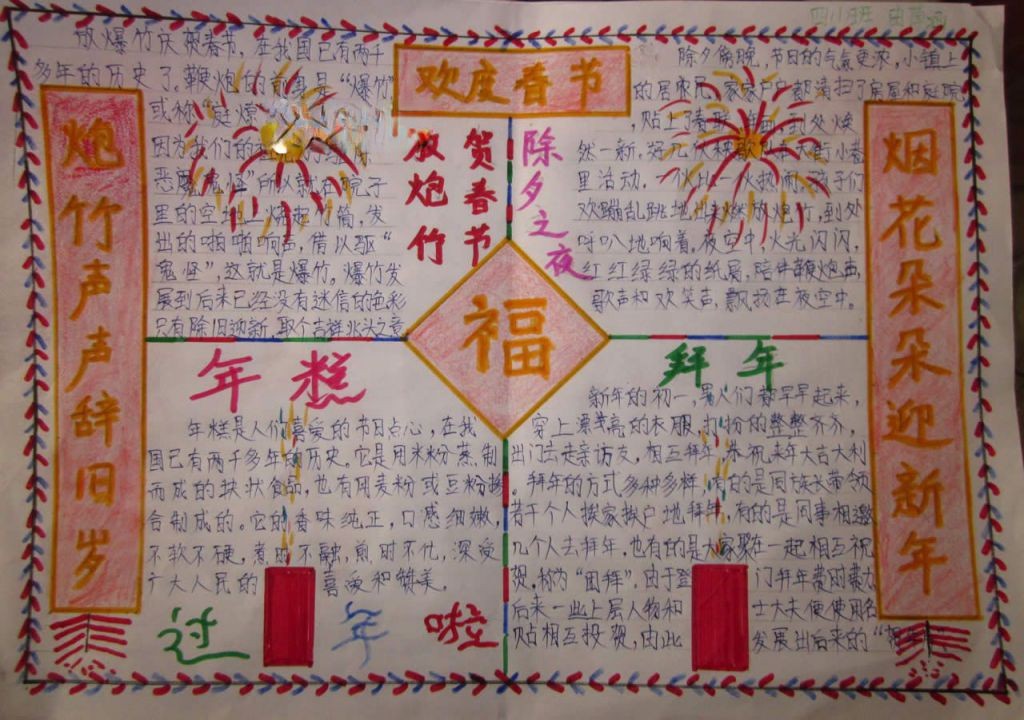 四(八)班
欢度春节
炮竹声声辞旧岁
烟花朵朵迎新年
福
贺春节
放炮竹
放爆竹庆祝春节，在我国已有两千
多年的历史了。鞭炮的前身是“爆竹”
或称“庭燎”
因为我们的
恶魔鬼怪”所以就在院子
里的空地上烧起竹筒，发
出的啪啪响声，借以驱“
鬼怪”，这就是爆竹。爆竹发
展到后来已经没有迷信的色彩
只有除旧迎新，取个吉祥兆头之意
除夕之夜
除夕傍晚，节日的气氛更浓，小镇上
的居民，家家户户都清扫了房屋和庭院
，贴上了春联，到处焕
然一新，好几伙秧歌队在大街小巷
里活动，一伙比一伙热闹，孩子们
欢蹦乱跳地出来燃放炮竹，到处
呼叭地响着，夜空中，火光闪闪，
红红绿绿的纸屑，陪伴鞭炮声，
歌声和欢笑声，飘扬在夜空中。
年糕
年糕是人们喜爱的节日点心，在我
国已有两千多年的历史。它是用米粉蒸制
而成的块状食品，也有用麦粉或豆粉掺
合制成的。它的香味纯正，口感细嫩，
不软不硬，煮时不融，煎时不化，深受
广大人民的喜爱和赞美。
过年啦
拜年
新年的初一，人们都早早起来，
穿上漂亮的衣服，打扮的整整齐齐，
出门去走亲访友，相互拜年，恭祝来年大吉大利
。拜年的方式多种多样，有的是同族长带领
若干个人挨家挨户地拜年，有的是同事相邀
几个人去拜年，也有的是大家聚在一起相互祝
贺，称为“团拜”。由于登门拜年费时费力
后来一些上层人物和士大夫便使用名
贴相互投贺，由此发展出后来的“